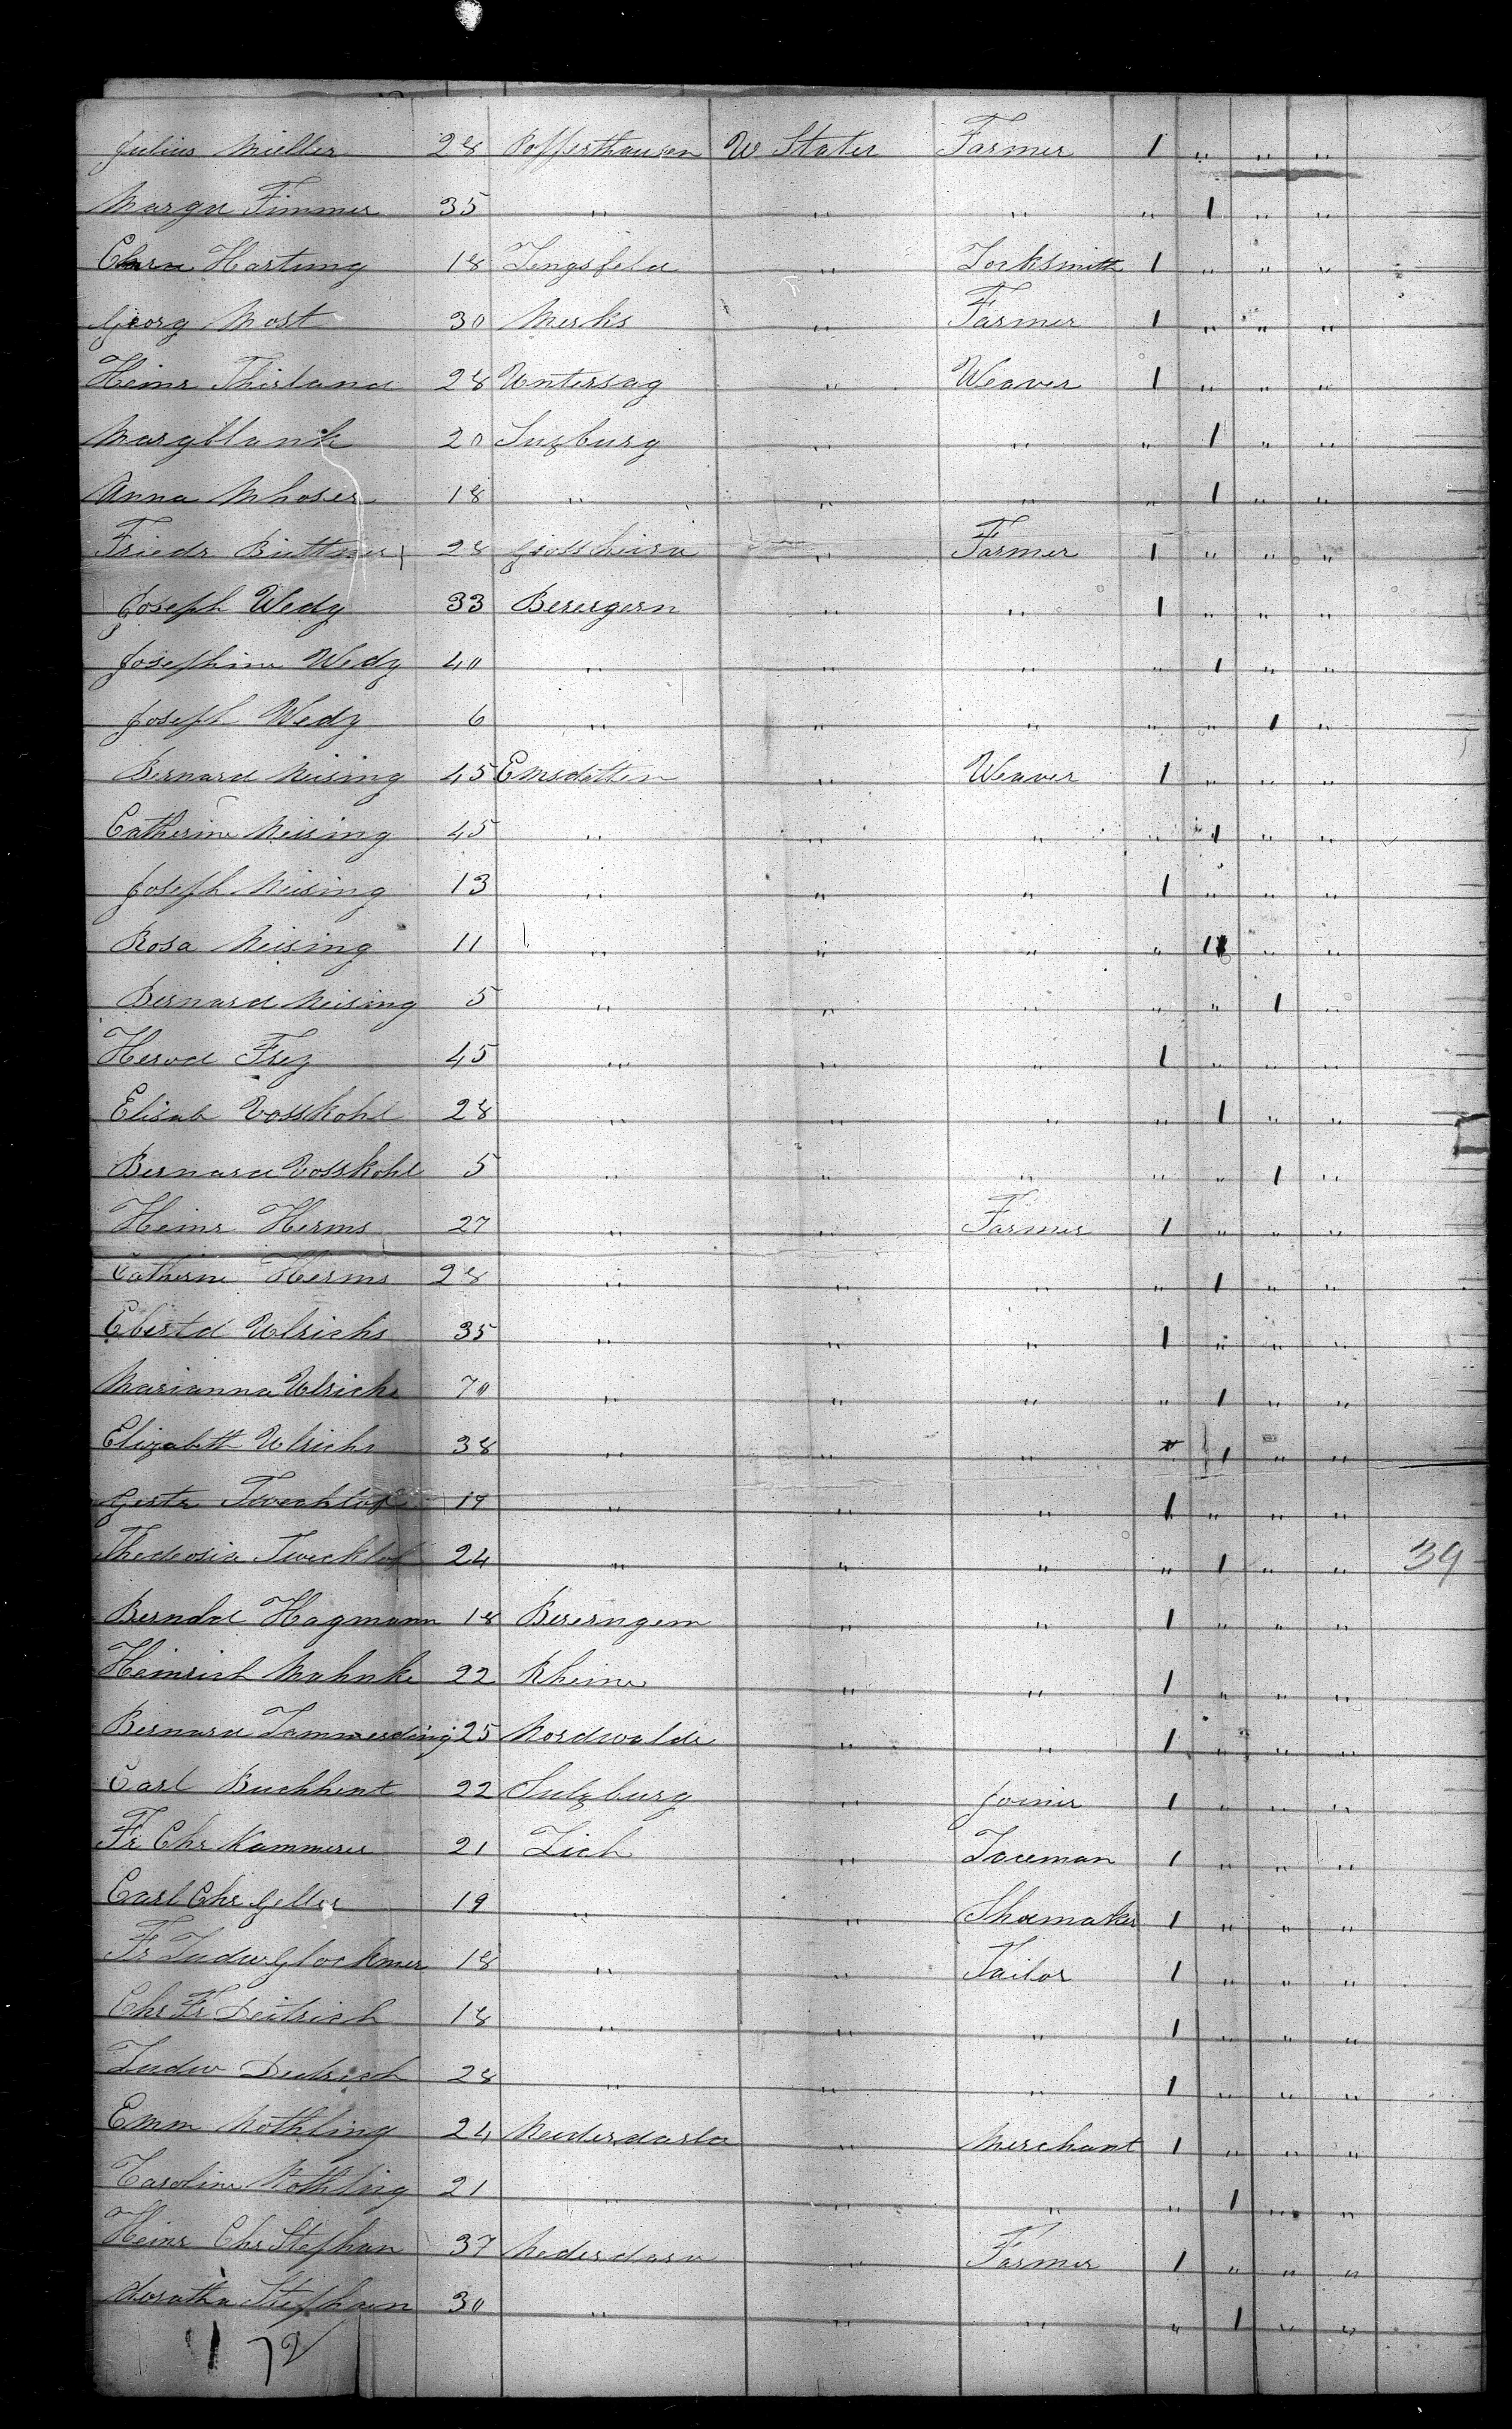 Julius Müller 28 Rofferthausen W States Farmer 1 " " "
Margar Fimmer 35 " " " " 1 " "
Hartung 18 Lengsfeld " Locksmith 1 " " "
Georg Most 30 Merks " Farmer 1 " " "
Heinr Thirland 28 Untersag " Weaver 1 " " "
Margblank 20 Suzburg " " " 1 " "
Anna Mhoser 18 " " " " 1 " "
Friedr Büttner 28 " Farmer 1 " " "
Joseph Wedy 33 Berergern " " 1 " " "
Josephine Wedy 40 " " " " 1 " "
Joseph Wedy 6 " " " " " 1 "
Bernard Meising 45 Emsdetten " Weaver 1 " " "
Catherine Meising 45 " " " " 1 " "
Joseph Meising 13 " " " 1 " " "
Rosa Meising 11 " " " " 1 " "
Bernard Meising 5 " " " " " 1 "
Herod Frey 45 " " " 1 " " "
Elisab Vosskohl 28 " " " " 1 " "
Bernard Vosskohl 5 " " " " " 1 "
Heinr Herms 27 " " Farmer 1 " " "
Catherine Herms 28 " " " " 1 " "
Ebertd Ulrichs 35 " " " 1 " " "
Marianna Ulrichs 70 " " " " 1 " "
Elizabeth Ulrichs 38 " " " " 1 " "
Gertr Twecklof 19 " " " 1 " " "
Thedeosia Twecklof 24 " " " " 1 " " 39
Berndd Hagmann 18 Bererngem " " 1 " " "
Heinrich Mahnke 22 Rheine " " 1 " " "
Bernard Tammerding 25 Nordwalde " " 1 " " "
Carl Buchhent 22 Sulzburg " Joiner 1 " " "
Fr Chr Kammerer 21 Lich " 1 " " "
Carl Chr Geller 19 " " Shoemaker 1 " " "
Fr Ludw Glockner 18 " " Tailor 1 " " "
Chr Fr Deitrich 18 " " " 1 " " "
Ludw Dietrich 28 " " " 1 " " "
Emm Nothling 24 Neiderdorla " Merchant 1 " " "
Caroline Nothling 21 " " " " 1 " "
Heinr Chr Stephan 37 Nederdorn " Farmer 1 " " "
Doratha Stephan 30 " " " " 1 " "
172